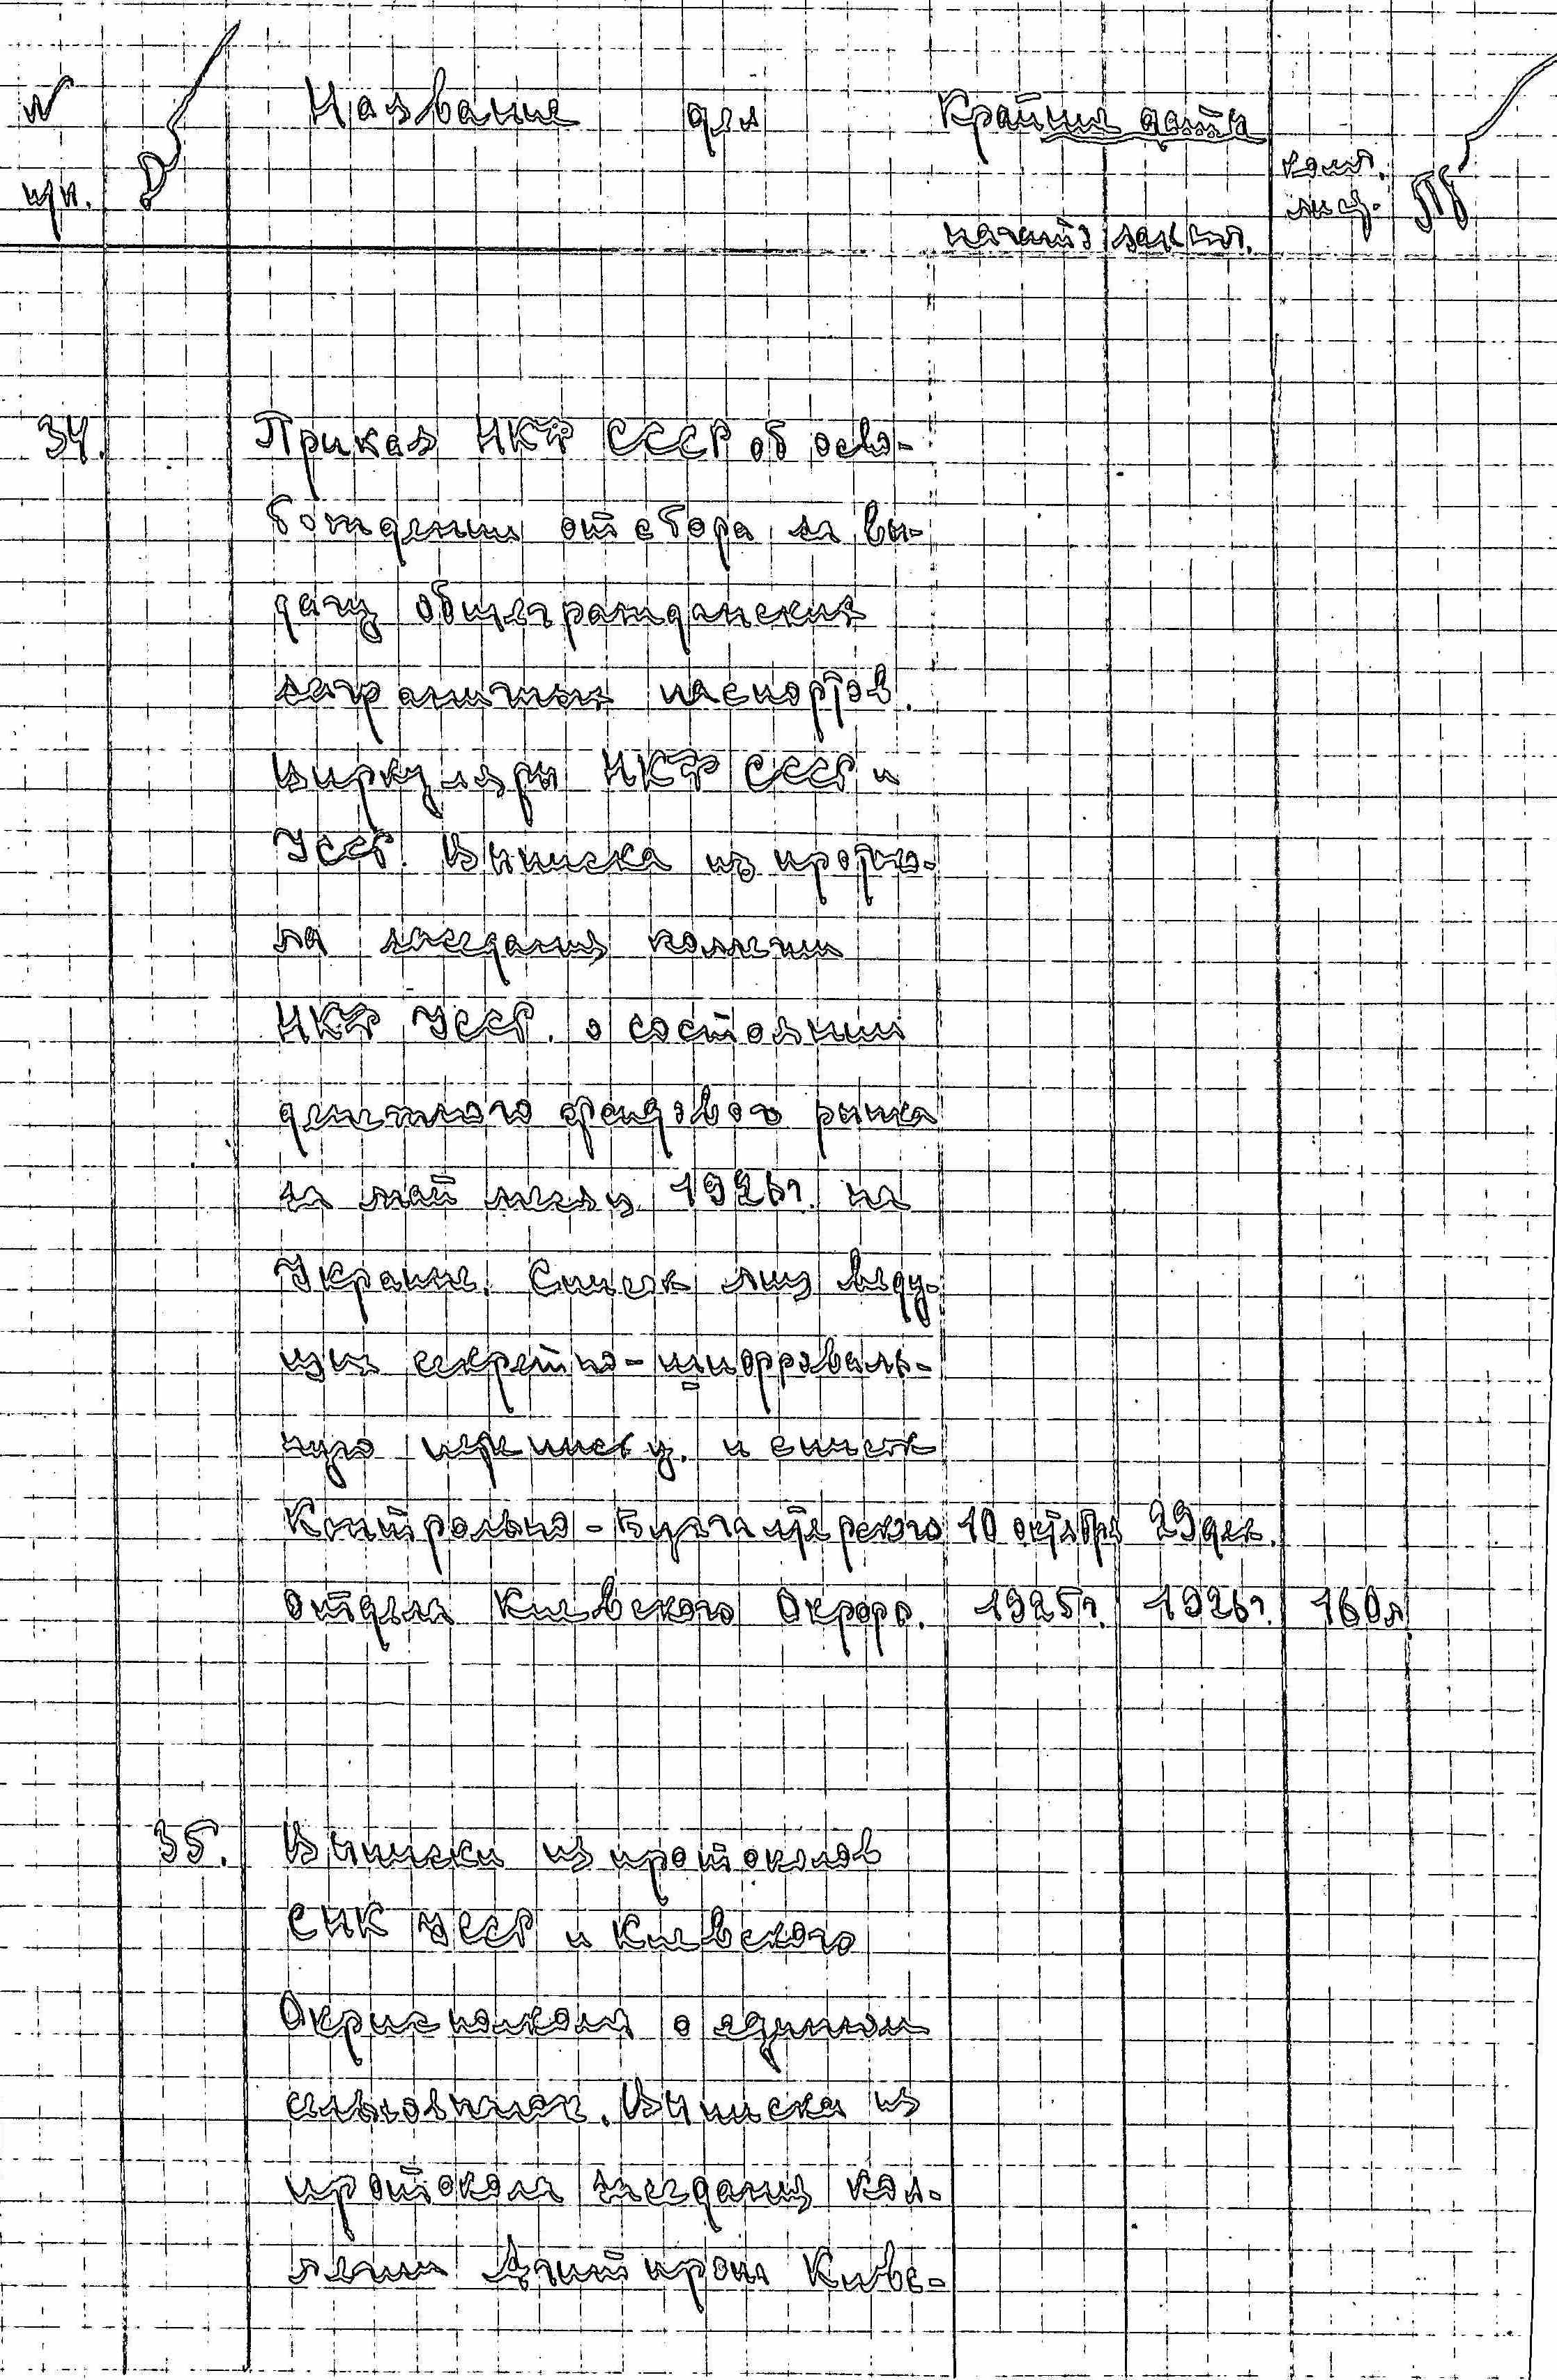 № Название дел Крайние даты
колич.
п/п. лист.
начат. законч.
34. Приказ НКФ СССР об осво-
бождении от сбора за вы-
дачу общегражданских
заграничных паспортов.
Циркуляры НКФ СССР и
УССР. Выписка из прото-
ла заседания коллегии
НКФ УССР. о состоянии
денежного фондового рынка
за май месяц 1926г. на
Украине. Список лиц веду-
щих секретно-шифроваль-
ную переписку. и список
Контрольно-Бухгалтерского 10 октября 29 дек.
отдела Киевского Окрфо. 1925г. 1926г. 160л.
35. Выписки из протоколов
СНК УССР и Киевского
Окрисполкома о едином
сельхозналоге. Выписка из
протокола заседания кол-
легии Агитпропа Киевс-